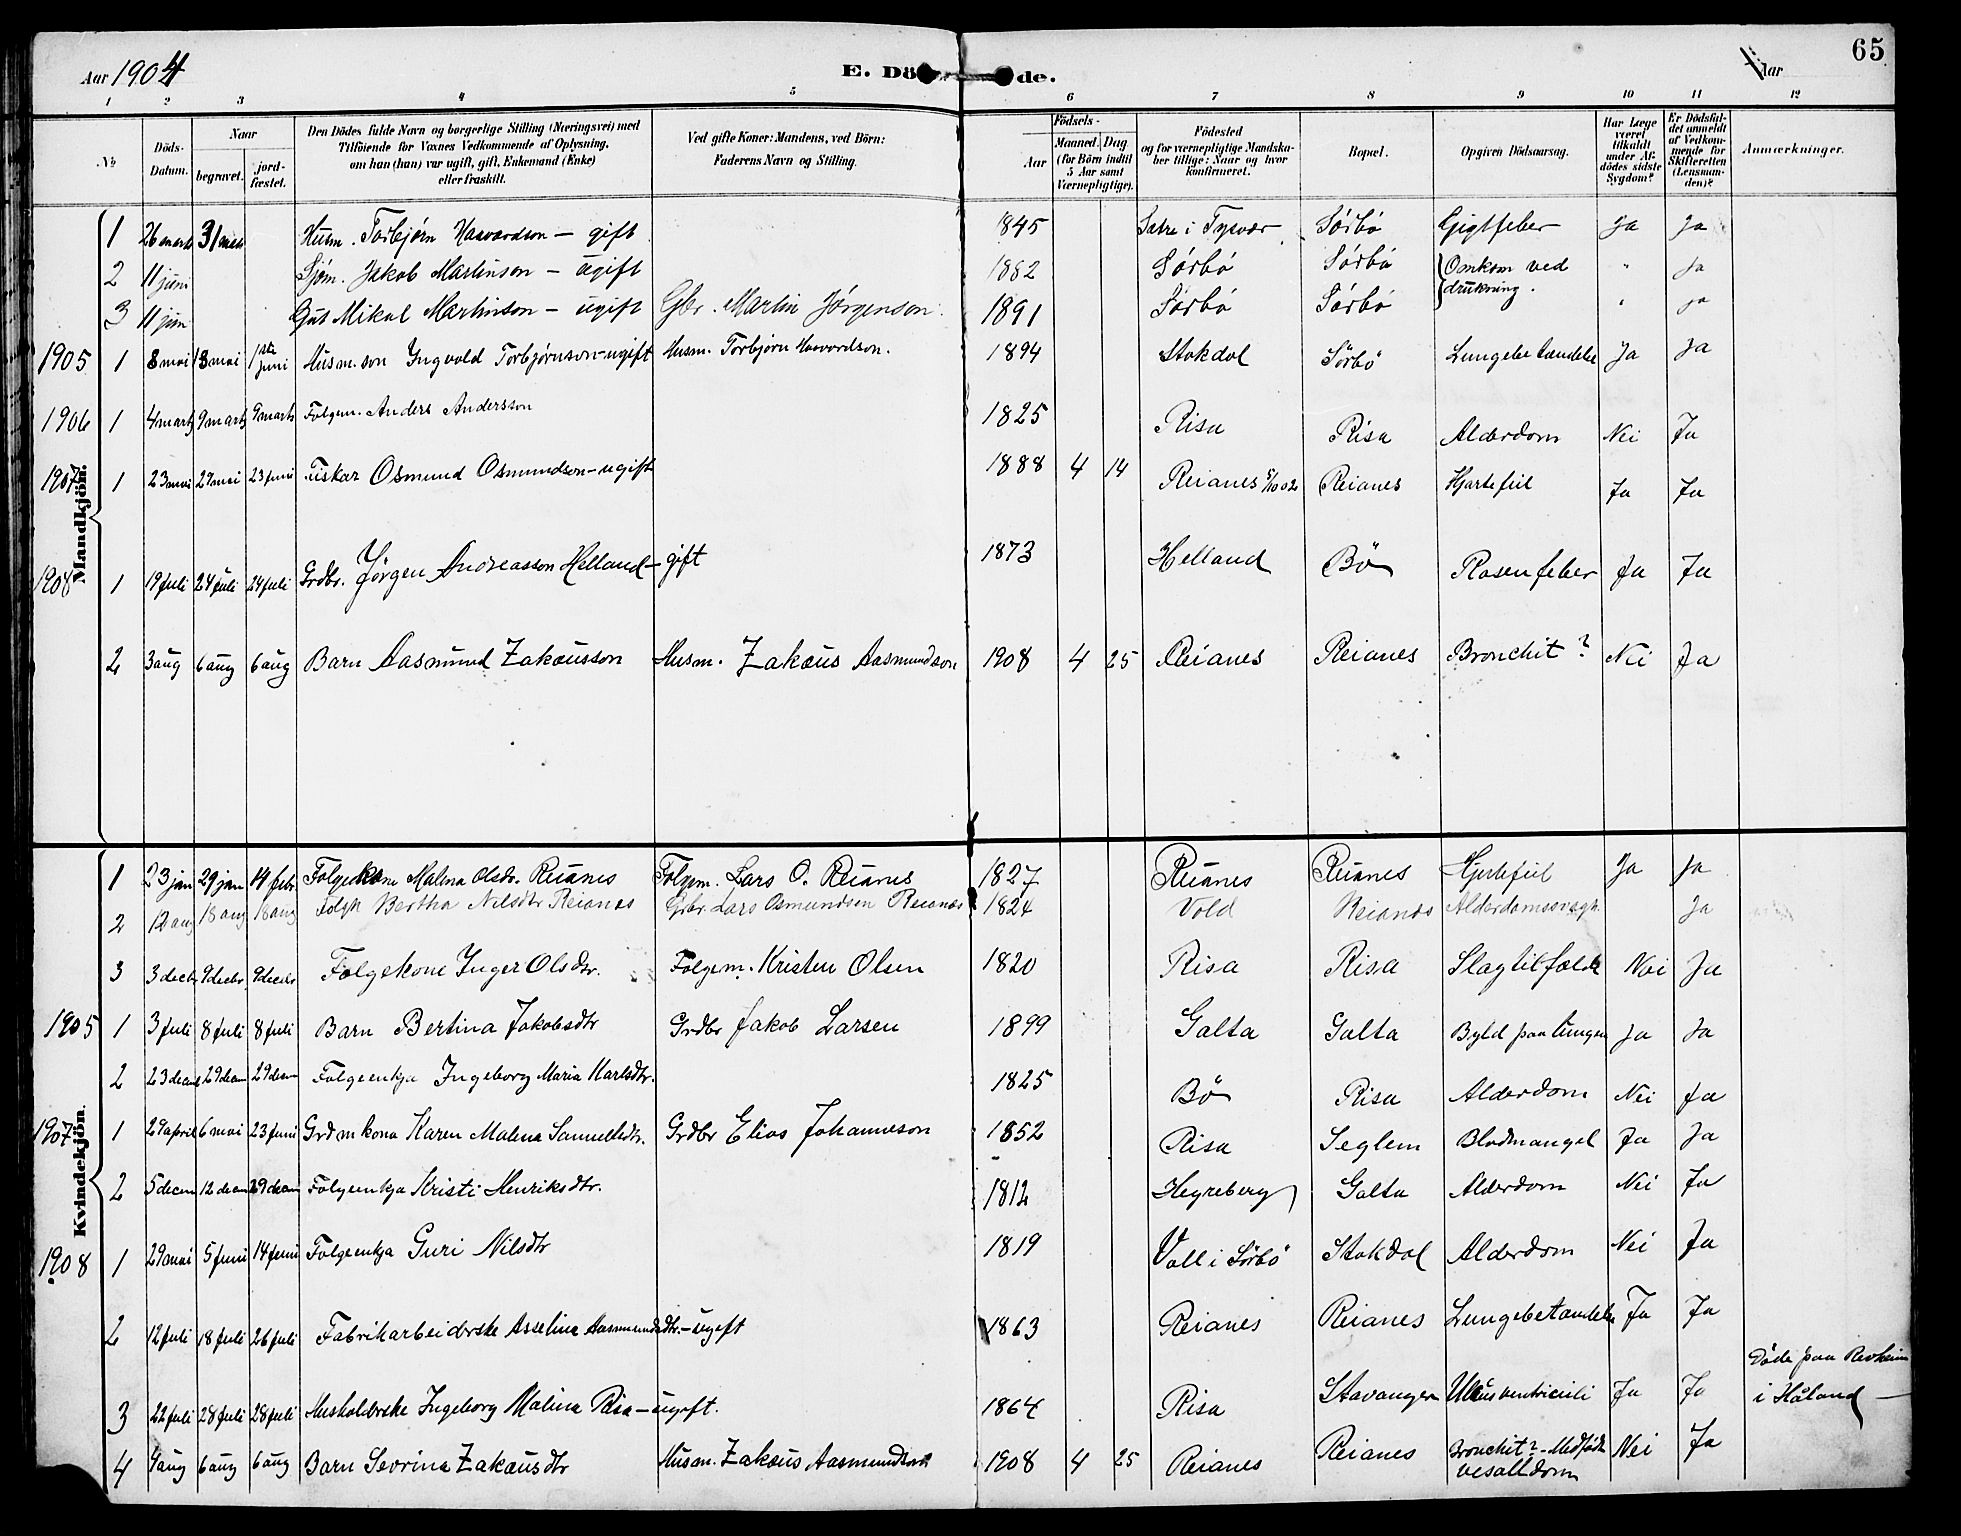 Aar 1904 E. Dö de. Aar 65
1 2 3 4 5 6 7 8 9 10 11 12
№ Döds-Datum. Naar begravet. jord-fæstet. Den Dödes fulde Navn og borgerlige Stilling (Næringsvei) med Tilföiende for Voxnes Vedkommende af Oplysning, om han (hun) var ugift, gift, Enkemand (Enke) eller fraskilt. Ved gifte Koner: Mandens, ved Börn: Faderens Navn og Stilling. Födsels- Aar Maaned. Dag (for Börn indtil 5 Aar samt Værnepligtige). Födested og for værnepligtige Mandska-ber tillige: Naar og hvor konfirmeret. Bopæl. Opgiven Dödsaarsag. Har Læge været tilkaldt under Af-dödes sidste Sygdom? Er Dödsfal-det anmeldt af Vedkom-mende for Skifteretten (Lensman-den)? Anmærkninger.
Mandkjön.
1 26 marts 31 mts Husm. Torbjørn Havardson – gift 1845 Sætre i Tysvær Sörbö Gigtfeber Ja Ja
2 11 juni Sjøm. Jakob Martinson – ugift 1882 Sörbö Sörbö Omkom ved " Ja
3 11 juni Gut Mikal Martinson – ugift Gbr. Martin Jørgenson. 1891 Sörbö Sörbö drukning. " Ja
1905 1 8 mai 13 mai 1ste juni Husm. son Ingvald Torbjørnson – ugift Husm. Torbjørn Havardson. 1894 Stokdal Sörbö Lungebetændelse Ja Ja
1906 1 4 marts 9 marts 9 marts Folgem. Anders Andersson 1825 Risa Risa Alderdom Nei Ja
1907 1 23 mai 29 mai 23 juni Fiskar Osmund Osmundson – ugift 1888 4 14 Reianes 5/10 02 Reianes Hjartefeil Ja Ja
1908 1 19 juli 24 juli 24 juli Grdbr. Jørgen Andreasson Helland – gift 1873 Helland Bö Rosenfeber Ja Ja
2 3 aug 6 aug 6 aug Barn Aasmund Zakæusson Husm. Zakæus Aasmundson 1908 4 25 Reianes Reianes Bronchit? Nei Ja
Kvindekjön.
1 23 jan 29 jan 14 febr Folgekone Malena Olsdr. Reianes Folgem. Lars O. Reianes 1827 Reianes Reianes Hjertefeil Ja Ja
2 12 aug 18 aug 18 aug Folgk Bertha Nilsdtr Reianes Grbr. Lars Osmundsen Reianes 1824 Vold Reianes Alderdomssvagh. Ja
3 3 decbr 9 decbr. 9 decbr Folgekone Inger Olsdtr. Folgem. Kristen Olsen 1820 Risa Risa Slagtilfælde Nei Ja
1905 1 3 juli 8 juli 8 juli Barn Bertina Jakobsdtr Grdbr Jakob Larsen 1899 Galta Galta Byld paa lungen Ja Ja
2 23 decem 29 decem 29 decem Folgeenkja Ingeborg Maria Karlsdtr. 1825 Bö Risa Alderdom Nei Ja
1907 1 29 april 6 mai 23 juni Grdmkona Karen Malena Samuelsdtr. Grdbr Elias Johanneson 1852 Risa Seglem Blodmangel Ja Ja
2 5 decem 12 decem 29 decem Folgeenkja Kristi Henriksdtr. 1812 Hegreberg Galta Alderdom Nei Ja
1908 1 29 mai 5 juni 14 juni Folgeenkja Guri Nilsdtr 1819 Voll i Sörbö Stokdal Alderdom Nei Ja
2 12 juli 18 juli 26 juli Fabrikarbeiderske Asselina Aasmundsdtr. – ugift 1863 Reianes Reianes Lungebetændelse Ja Ja
3 22 juli 28 juli 28 juli Husholderske Ingeborg Malina Risa – ugift. 1864 Risa Stavanger Ulcus ventriculi Ja Ja Döde paa Revheim i Håland
4 4 aug 6 aug 6 aug Barn Sevrina Zakæusdtr Husm. Zakæus Aasmundson 1908 4 25 Reianes Reianes Bronchit? – Medfödt vesalldom Nei Ja